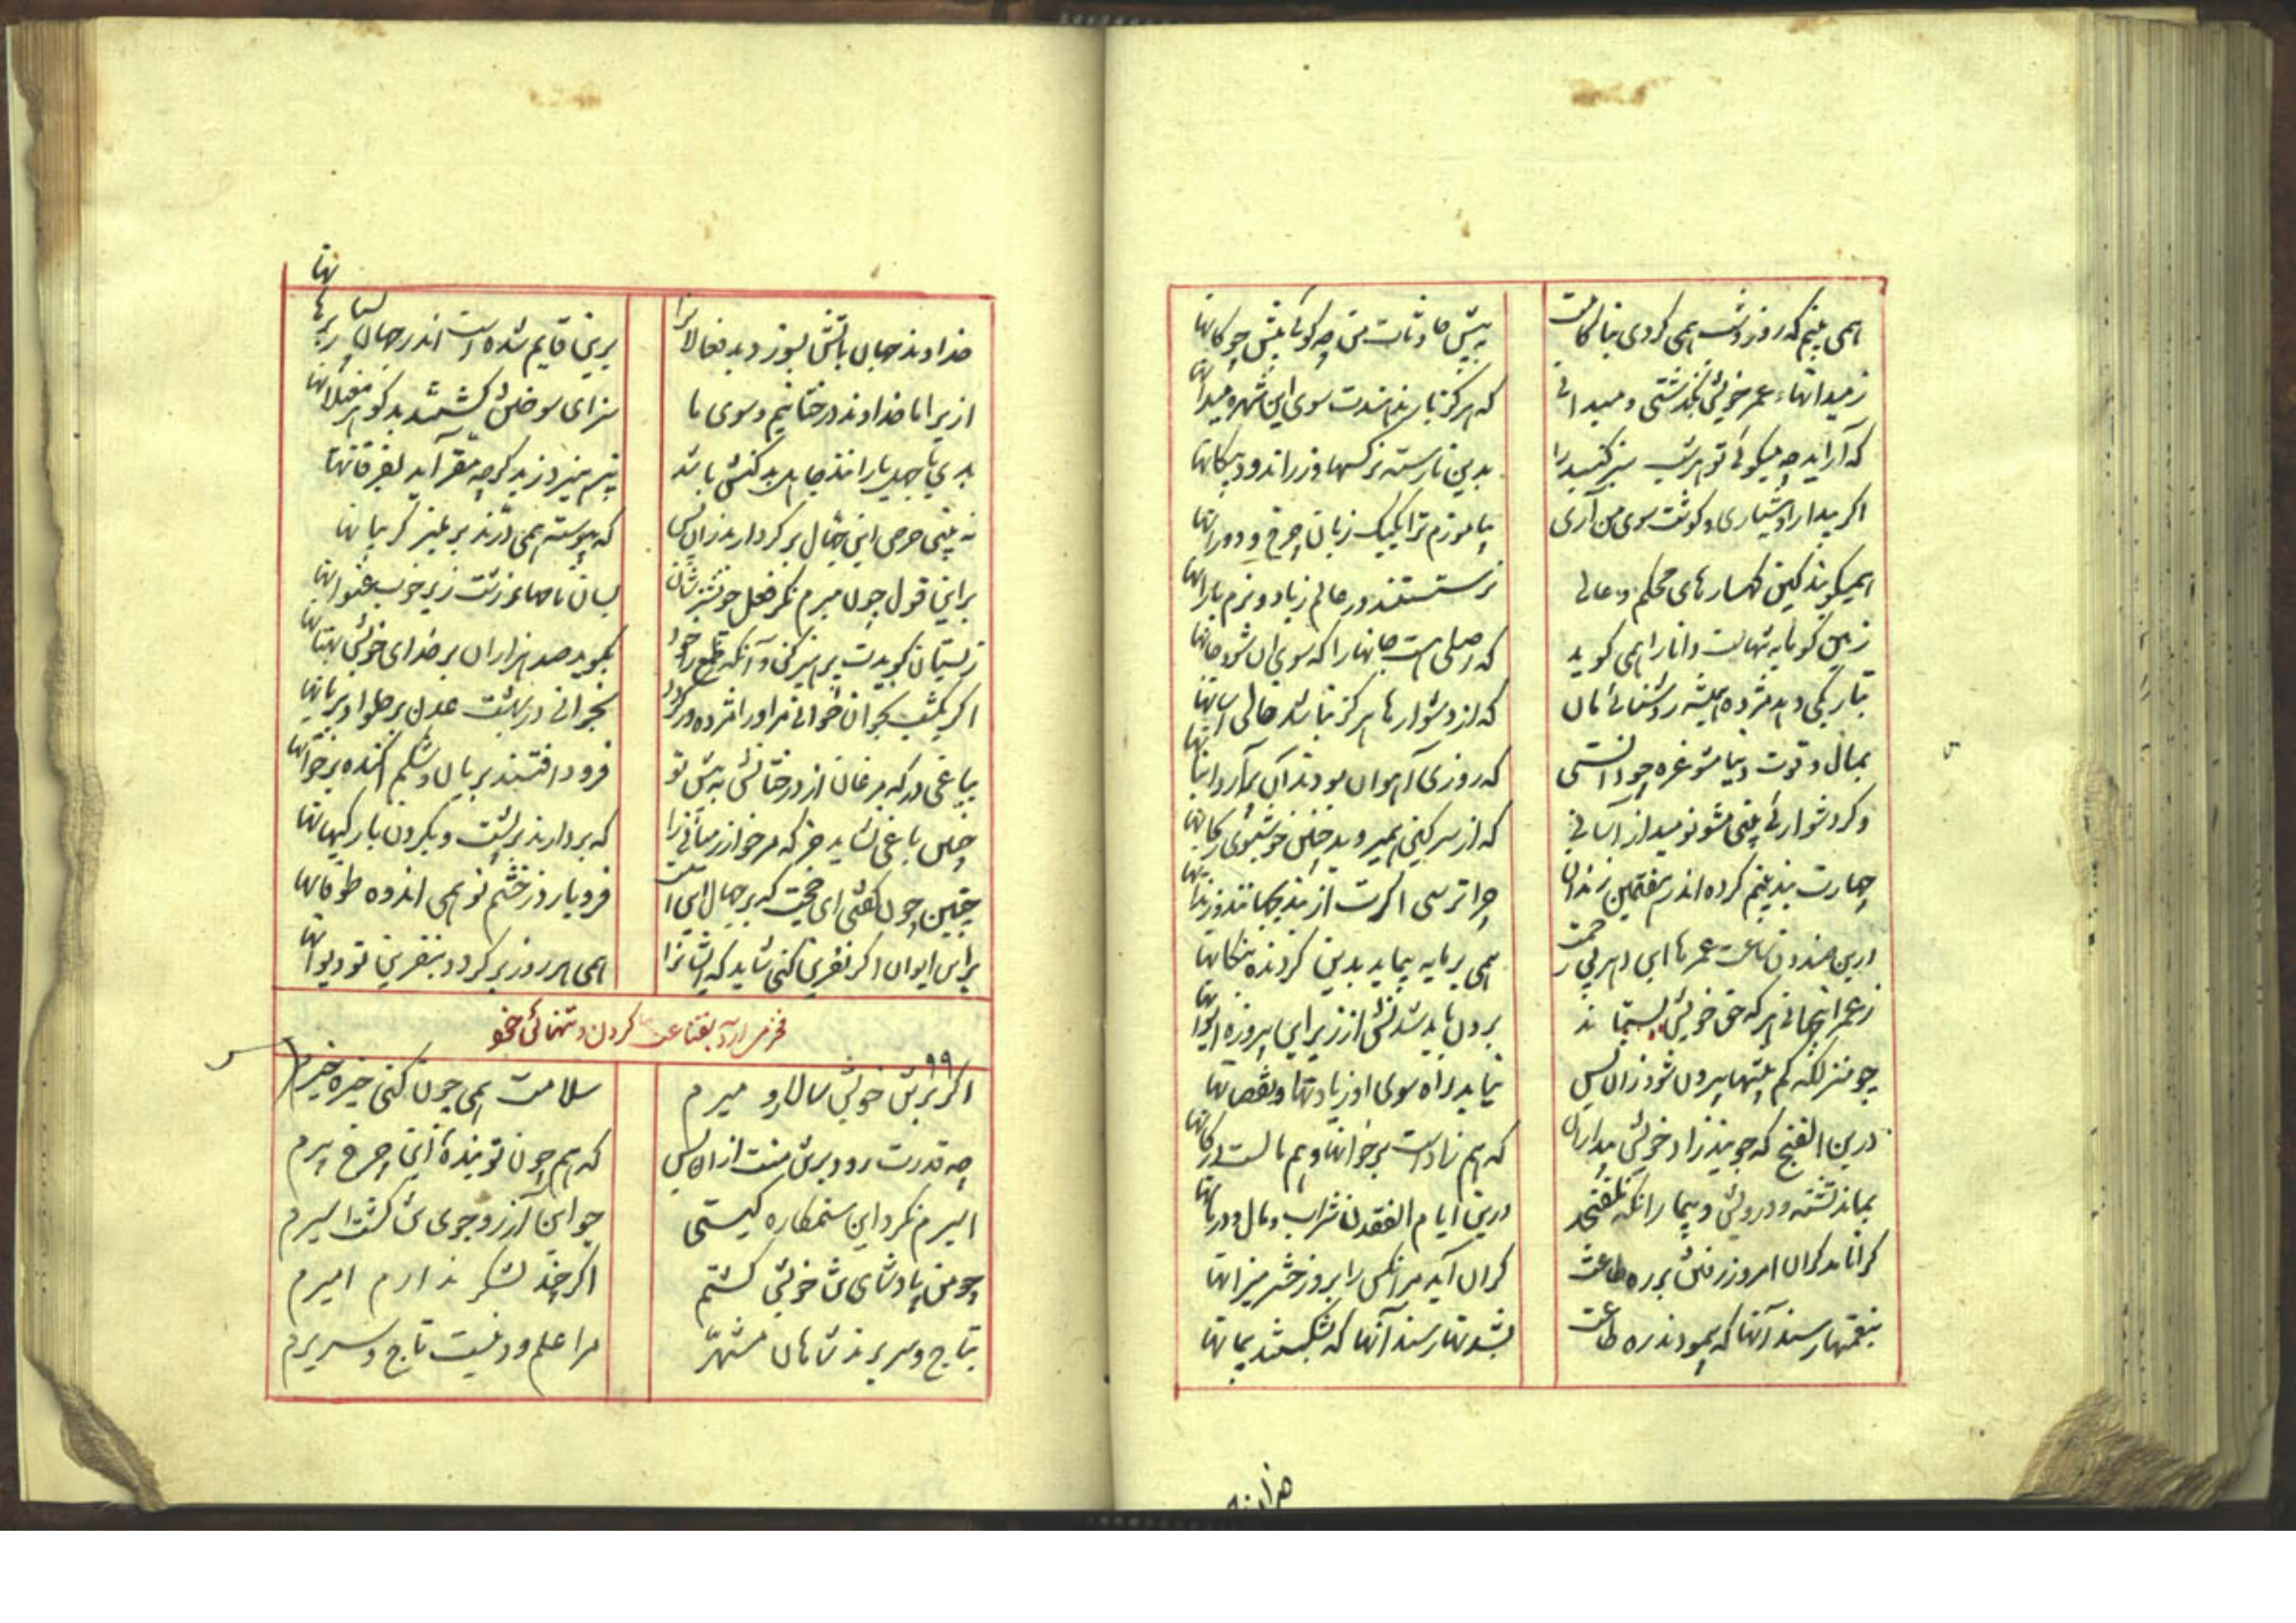 همی بینم که روز و شب همی گردی بناکامت
به پیش حادثات من چو گویی پیش چوگانها
ز میدانهاء عمر خویش بگذشتی و میدانی
که هرگز باز نداندت سوی این شهره میدانها
که آراید چه میگوئی تو هر شب سبز گنبد را
بدین نارسته نرگسها و زراندود پیکانها
اگر بیدار و هشیاری و گوشت سوی من آری
بیاموزم ترا یکیک زبان چرخ و دورانها
همیگویند کین کهسارهای محکم و عالی
نرستستند در عالم ز باد و نرم بارانها
زمین گویا به تنهاست دانا را همی گوید
که اصلی هست جانها را که سوی آن شود جانها
بتاریکی دهد مژده همیشه روشنائی مان
که از دشوارها هرگز نباشد خالی آسانها
بمال و قوت دنیا مشو غره چو دانستی
که روزی آهوان بودند آن پرآرد انبانها
وگر دشوارئی بینی مشو نومید از آسانی
که از سرگین همیروید چنین خوشبوی ریحانها
چهارت بند بینم کرده اندر هفتمین زندان
چرا ترسی اگرت از بند بجهانند و زندانها
درین صندوق ساعت عمرها این دهر بی رحمت
همی برمایه پیماید بدین گردنده پنگانها
ز عمر اینجهانی هر که حق خویش بستاند
برون باید شدنش از زیر این پیروزه ایوانها
چو منزلگه کم بیشها بیرون شود زان پس
نیابد راه سوی او زیادتها و نقصانها
درین الفنج گه جویند زاد خویش بیداران
که هم زادست بر خوانها و هم مالست در کانها
بماند تشنه و درویش و بیمار آنکه نلفنجد
درین ایام الفغدن شراب و مال و درمانها
گرانا مد گران امروز رفتن بر ره طاعت
گران آید مر آنکس را بروز حشر میزانها
بنعمتها رسند آنها که پیمودند ره طاعت
بشدتها رسند آنها که بشکستند پیمانها
هزاران
خداوند جهان باتش بسوزد بد فعالان را
برین قایم شده است اندر جهان بسیار برهانها
ازیرا ما خداوند درختانیم و سوی ما
سزای سوختن گشتند بدگوهر مغیلانها
بدی با جهل یارانند جاهل بدکنش باشد
نپرهیزد ز بد گرچه مقر آید بفرقانها
نه بینی حرص این جهال بر کردار بد زان پس
که پیوسته همی درند بر منبر گریبانها
بر این قول چون مبرم نگر فعل چو نشترشان
بسان نامهاء زشت زیر خوب عنوانها
ز بستیان گویدت پرهیز کن و آنگه بطمع خود
بگوید صد هزاران بر خدای خویش بهتانها
اگر یکشب بخوان خوانی مر او را مژده ور گردد
بخوانی در بهشت عدن پر حلوا و بریانها
بباغی در که مرغان از درختانش به پیش تو
فرود افتند بریان و شکم آکنده بر خوانها
چنین باغی نشاید جز که مر خوارزمیانی را
که بردارند بر پشت و بگردن بار کپانها
چنین چون گفتی ای حجت که بر جهال این امت
فرو بارد ز خشم تو همی اندوه طوفانها
بر این ایوان اگر نفرین کنی شاید که ایشان را
همی هر روز برگردد بنفرین تو دیوانها
فخر مرارآد بقناعت کردن و تنهائی خو
۹۹
اگر بر تن خویش سالار و میرم
ملامت همی چون کنی خیره خیرم
چه قدرت رود بر تن منت ازان پس
که هم چون تو بندهٔ این چرخ پیرم
اسیرم نکرد این ستمکاره گیتی
چو این آرزو جوی تن گشت اسیرم
چو من پادشای تن خویش گشتم
اگر چند لشکر ندارم امیرم
بتاج و سریرند شاهان مشهر
مرا علم و دینست تاج و سریرم